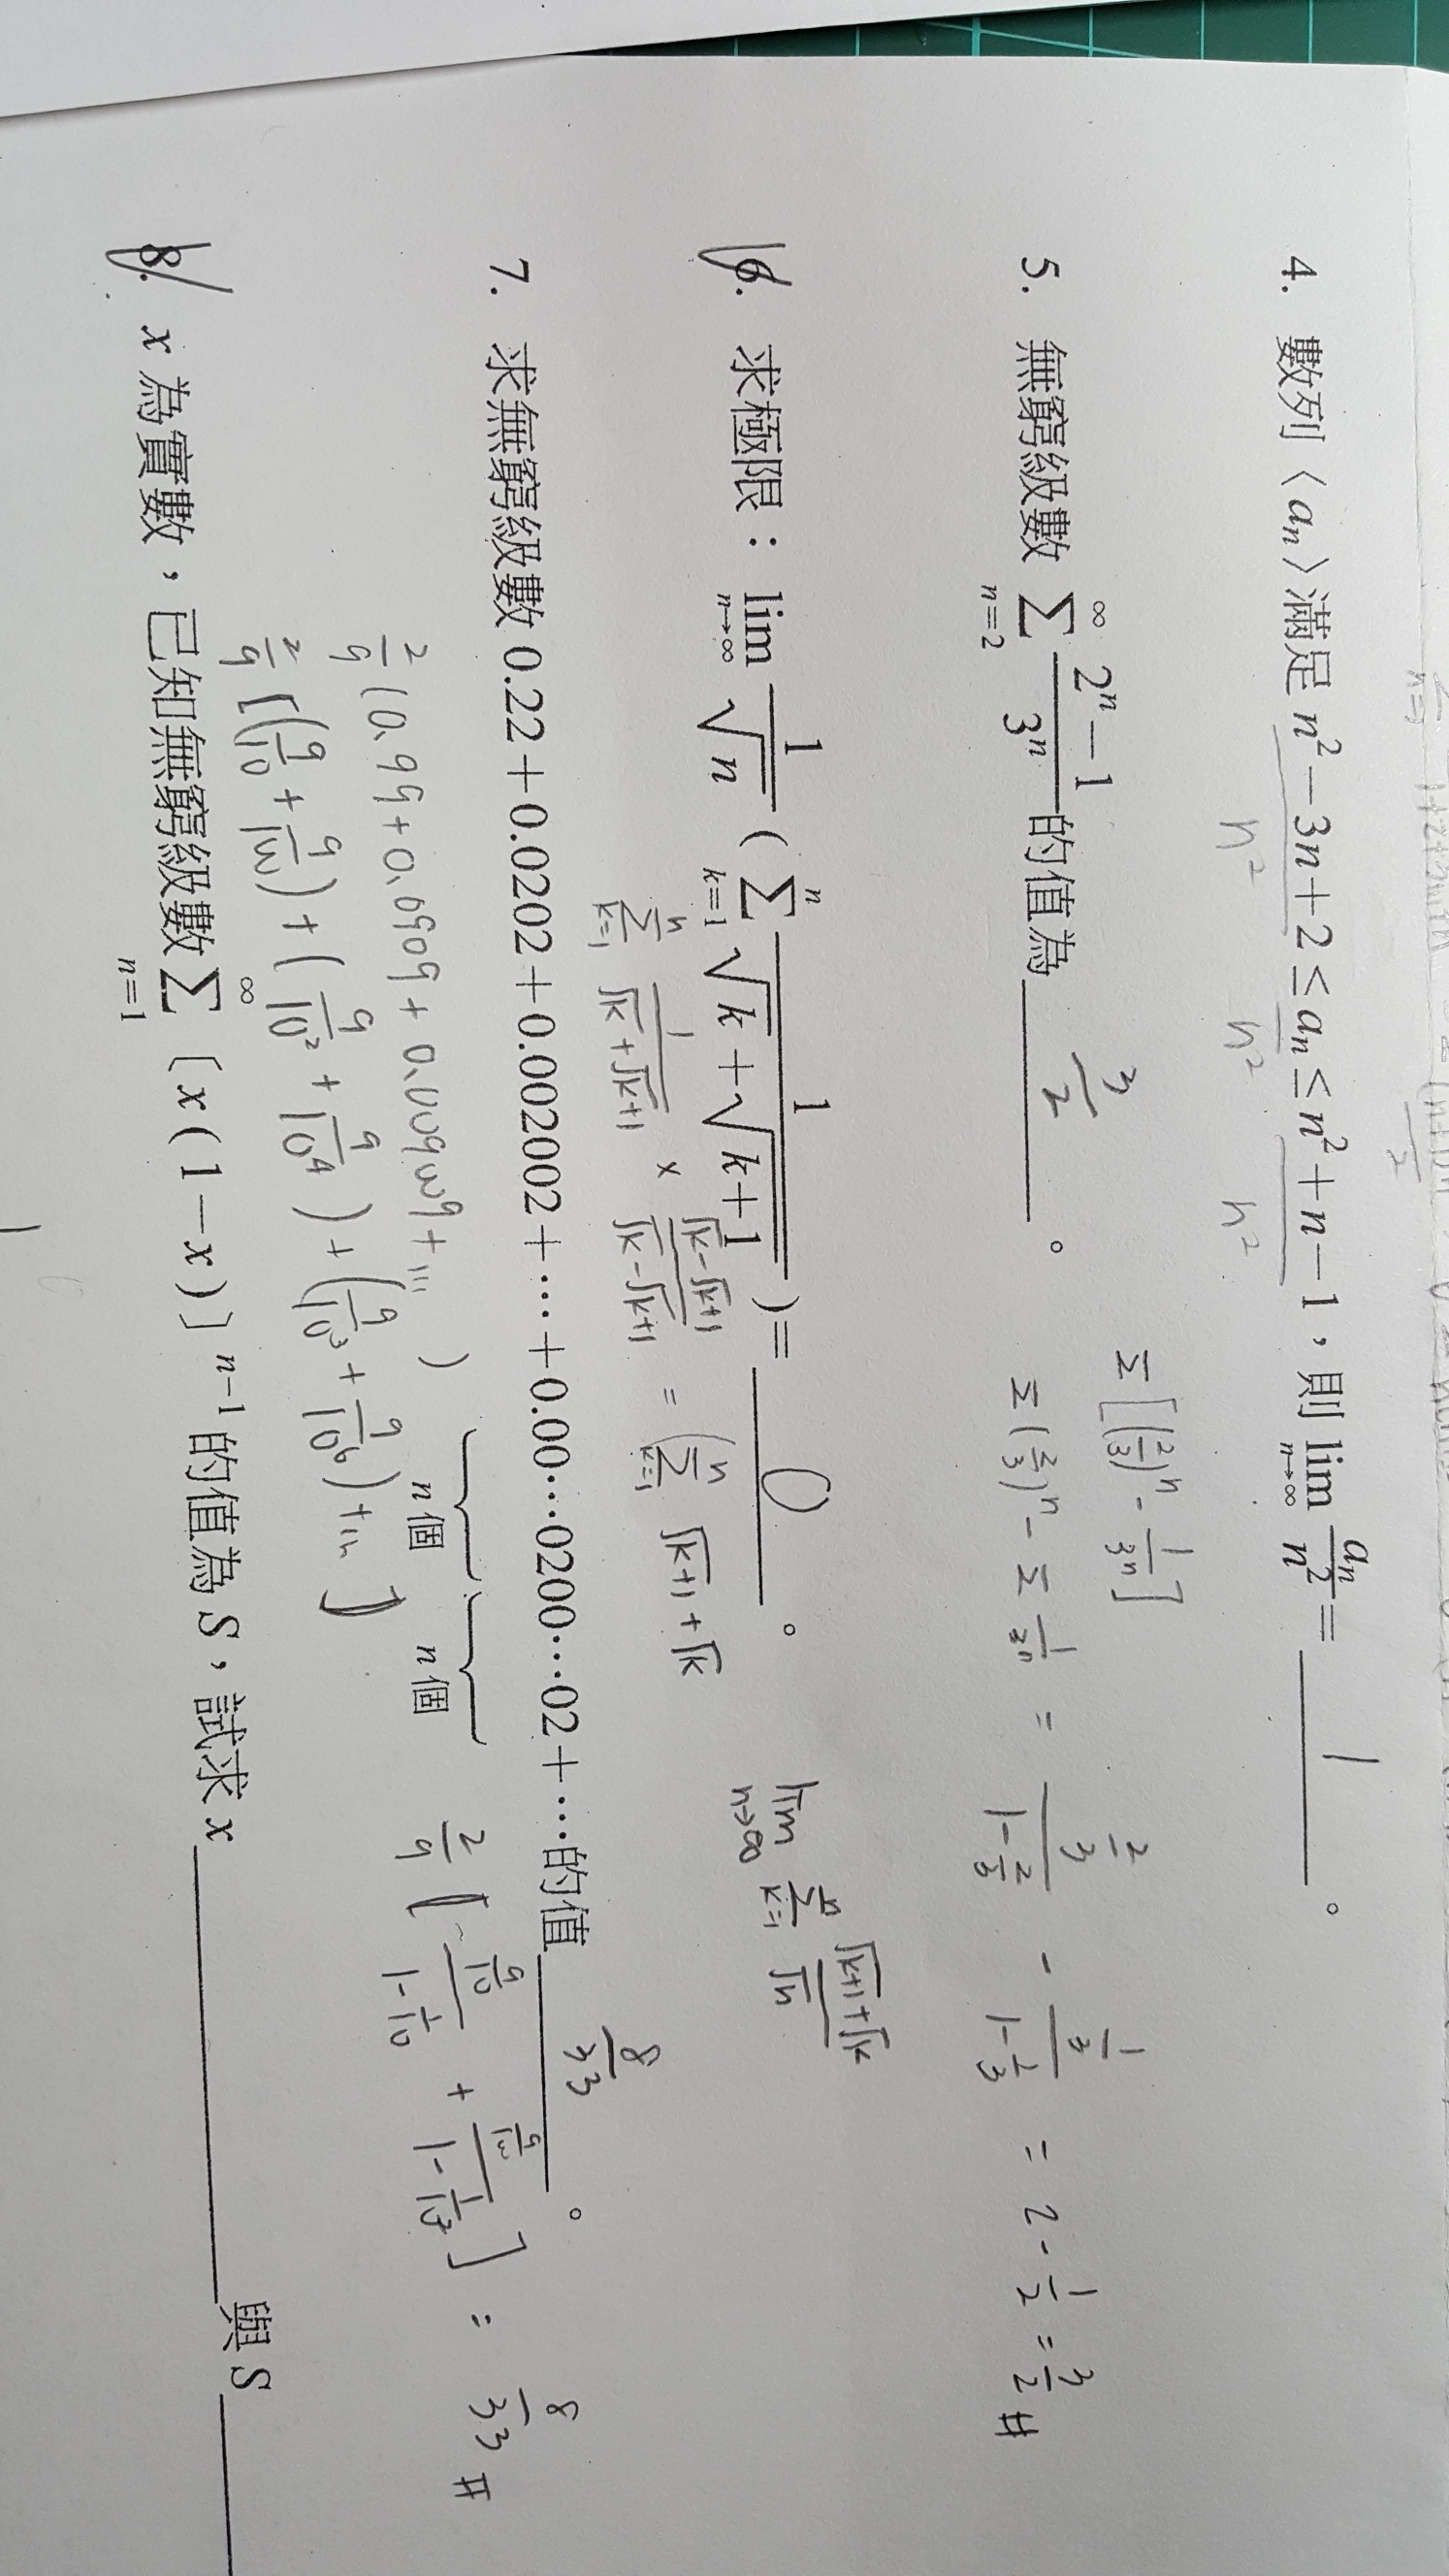 4. 數列〈aₙ〉滿足 n²－3n＋2 ≤ aₙ ≤ n²＋n－1，則 lim_{n→∞} aₙ/n² = 1 。
n² n² n²
5. 無窮級數 ∑_{n=2}^{∞} (2ⁿ－1)/3ⁿ 的值為 3/2 。
Σ[(2/3)ⁿ - 1/3ⁿ]
Σ(2/3)ⁿ - Σ 1/3ⁿ = (2/3)/(1-2/3) - (1/3)/(1-1/3) = 2 - 1/2 = 3/2 #
6. 求極限：lim_{n→∞} 1/√n (∑_{k=1}^{n} 1/(√k＋√(k+1))) = 0 。
∑_{k=1}^{n} 1/(√k+√(k+1)) × (√k-√(k+1))/(√k-√(k+1)) = (∑_{k=1}^{n} √(k+1)+√k
lim_{n→∞} ∑_{k=1}^{n} (√(k+1)+√k)/√n
7. 求無窮級數 0.22＋0.0202＋0.002002＋…＋0.00…0200…02＋…的值 8/33 。
n個 n個
2/9 (0.99+0.0909+0.009009+… )
2/9 [(9/10 + 9/100) + (9/10² + 9/10⁴) + (9/10³ + 9/10⁶) + … ]
2/9 [ (9/10)/(1-1/10) + (9/100)/(1-1/10²) ] = 8/33 #
8. x 為實數，已知無窮級數 ∑_{n=1}^{∞}〔x(1－x)〕ⁿ⁻¹ 的值為 S，試求 x 與 S